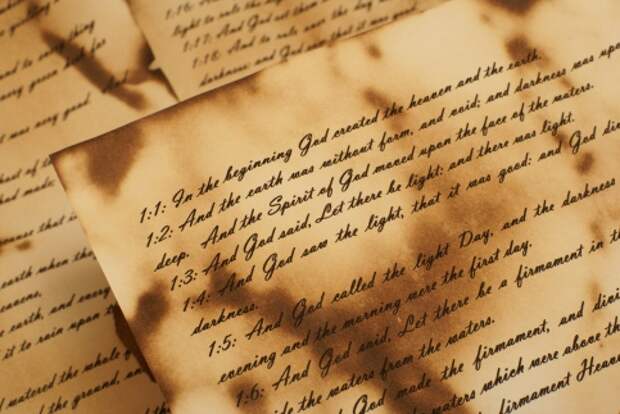 1:16:
light to rule the
1:17: And God set them
1:18: And to rule over the day
darkness: and God saw that it was good.
to every thing
every green herb for
was very good. And
host of
had made;
because that
earth when they
heavens,
earth, and every
it to rain upon
watered the whole
the ground, and
1:1: In the beginning God created the heaven and the earth.
1:2: And the earth was without form, and void; and darkness was upon
deep. And the Spirit of God moved upon the face of the waters.
1:3: And God said, Let there be light: and there was light.
1:4: And God saw the light, that it was good: and God
darkness.
1:5: And God called the light Day, and the darkness
evening and the morning were the first day.
1:6: And God said, Let there be a firmament in
the waters from the waters.
God made the firmament, and
waters which were above the
firmament